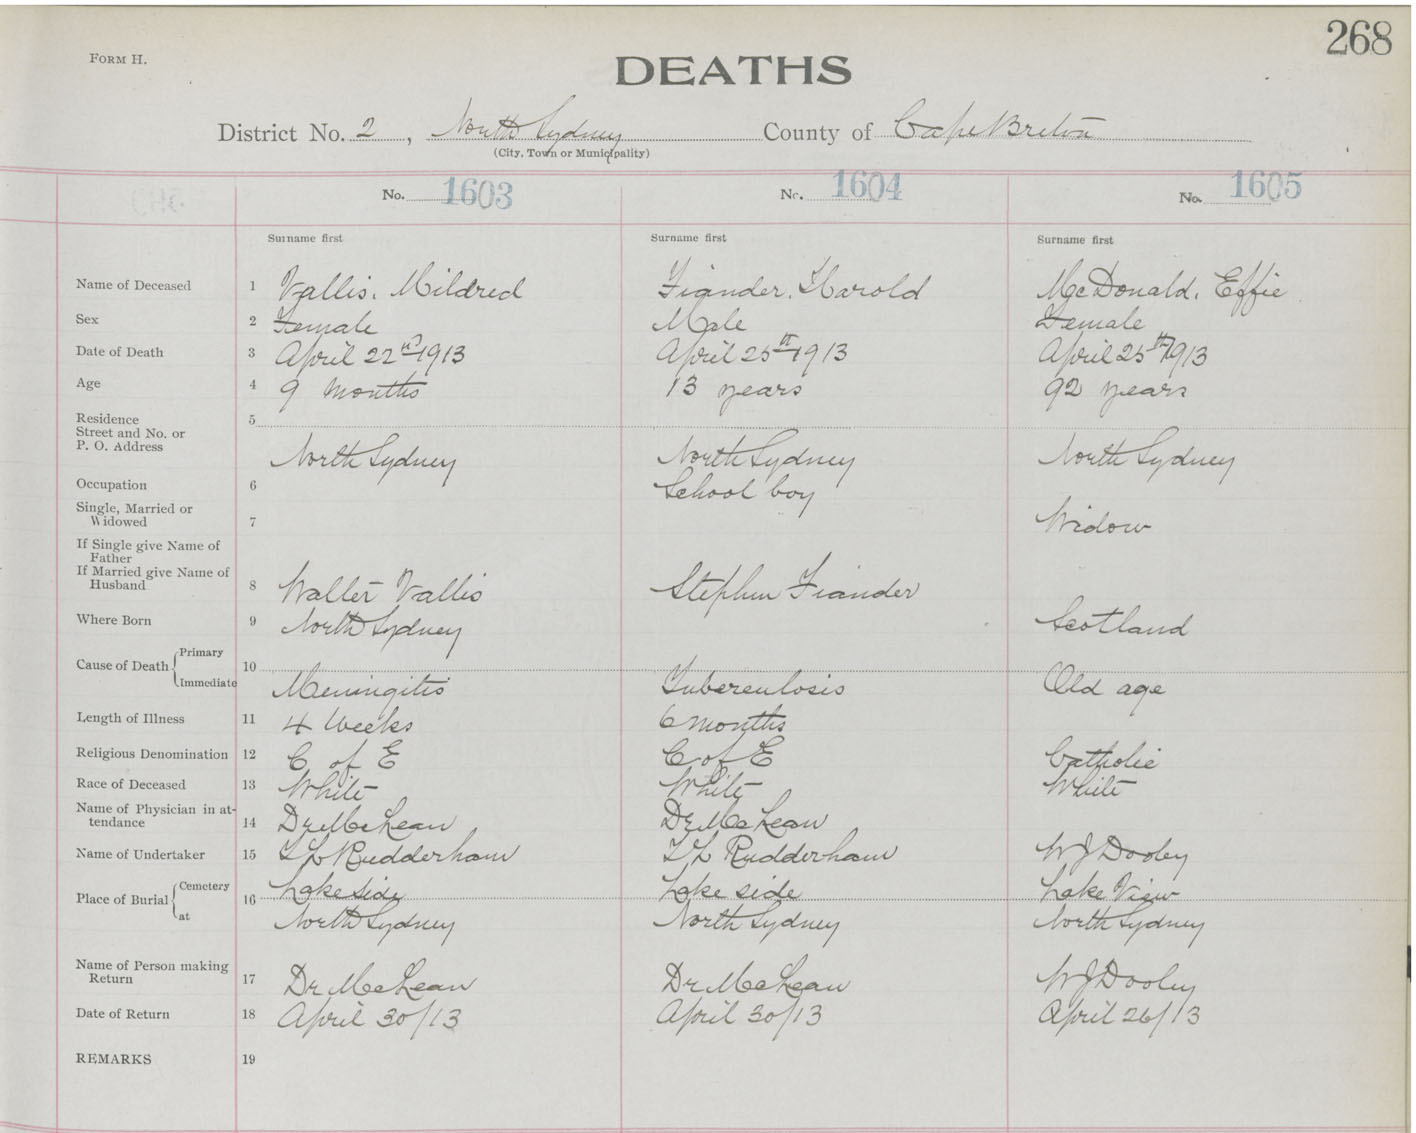 268
FORM H.
DEATHS
District No. 2, North Sydney County of Cape Breton
(City, Town or Municipality)
No. 1603 No. 1604 No. 1605
Surname first Surname first Surname first
Name of Deceased 1 Vallis, Mildred Fiander, Harold McDonald, Effie
Sex 2 Female Male Female
Date of Death 3 April 22nd 1913 April 25th 1913 April 25th 1913
Age 4 9 months 13 years 92 years
Residence 5
Street and No. or
P. O. Address
North Sydney North Sydney North Sydney
Occupation 6 School boy
Single, Married or
Widowed 7 Widow
If Single give Name of
Father
If Married give Name of
Husband 8 Walter Vallis Stephen Fiander
Where Born 9 North Sydney Scotland
Cause of Death Primary 10
Immediate Meningitis Tuberculosis Old age
Length of Illness 11 4 Weeks 6 months
Religious Denomination 12 C of E C of E Catholic
Race of Deceased 13 White White White
Name of Physician in at-
tendance 14 Dr McLean Dr McLean
Name of Undertaker 15 Rudderham Rudderham W J Dooley
Place of Burial Cemetery 16 Lake side Lake side Lake View
at North Sydney North Sydney North Sydney
Name of Person making
Return 17 Dr McLean Dr McLean W J Dooley
Date of Return 18 April 30/13 April 30/13 April 26/13
REMARKS 19